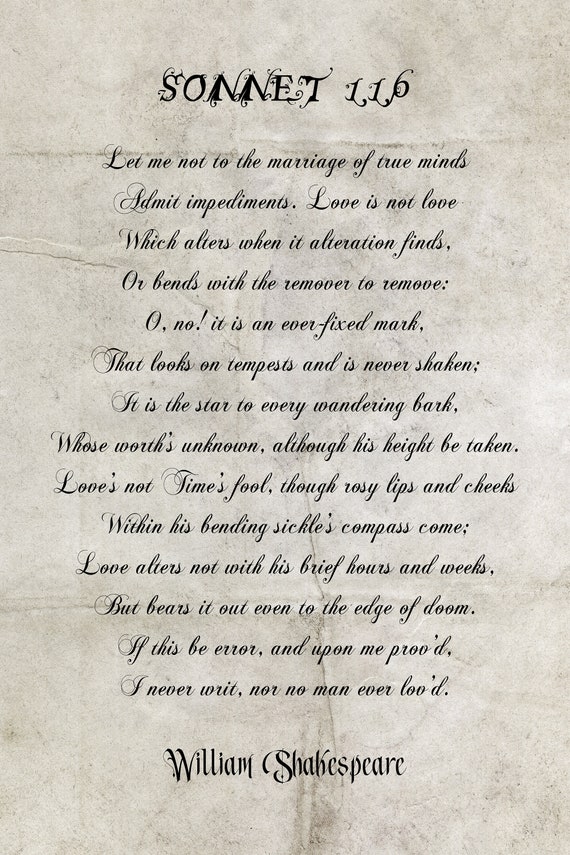 SONNET 116
Let me not to the marriage of true minds
Admit impediments. Love is not love
Which alters when it alteration finds,
Or bends with the remover to remove:
O, no! it is an ever-fixed mark,
That looks on tempests and is never shaken;
It is the star to every wandering bark,
Whose worth's unknown, although his height be taken.
Love's not Time's fool, though rosy lips and cheeks
Within his bending sickle's compass come;
Love alters not with his brief hours and weeks,
But bears it out even to the edge of doom.
If this be error, and upon me prov'd,
I never writ, nor no man ever lov'd.
William Shakespeare